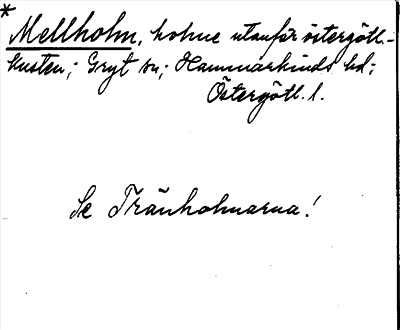 *
Mellholm, holme utanför östergötl.-
kusten; Gryt sn; Hammarkinds hd;
Östergötl. l.
Se Tränholmarna!